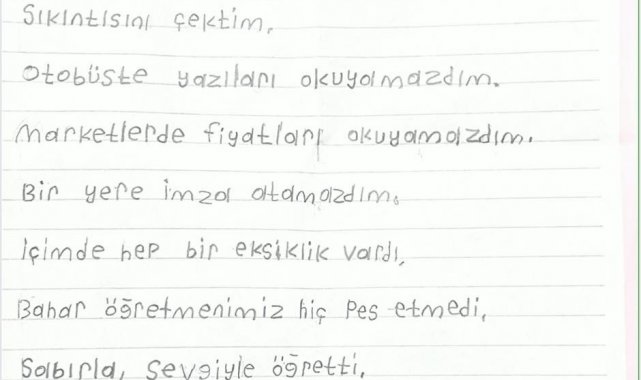 Sıkıntısını çektim.
Otobüste yazıları okuyamazdım.
Marketlerde fiyatları okuyamazdım.
Bir yere imza atamazdım.
İçimde hep bir eksiklik vardı.
Bahar öğretmenimiz hiç pes etmedi,
Sabırla, sevgiyle öğretti,